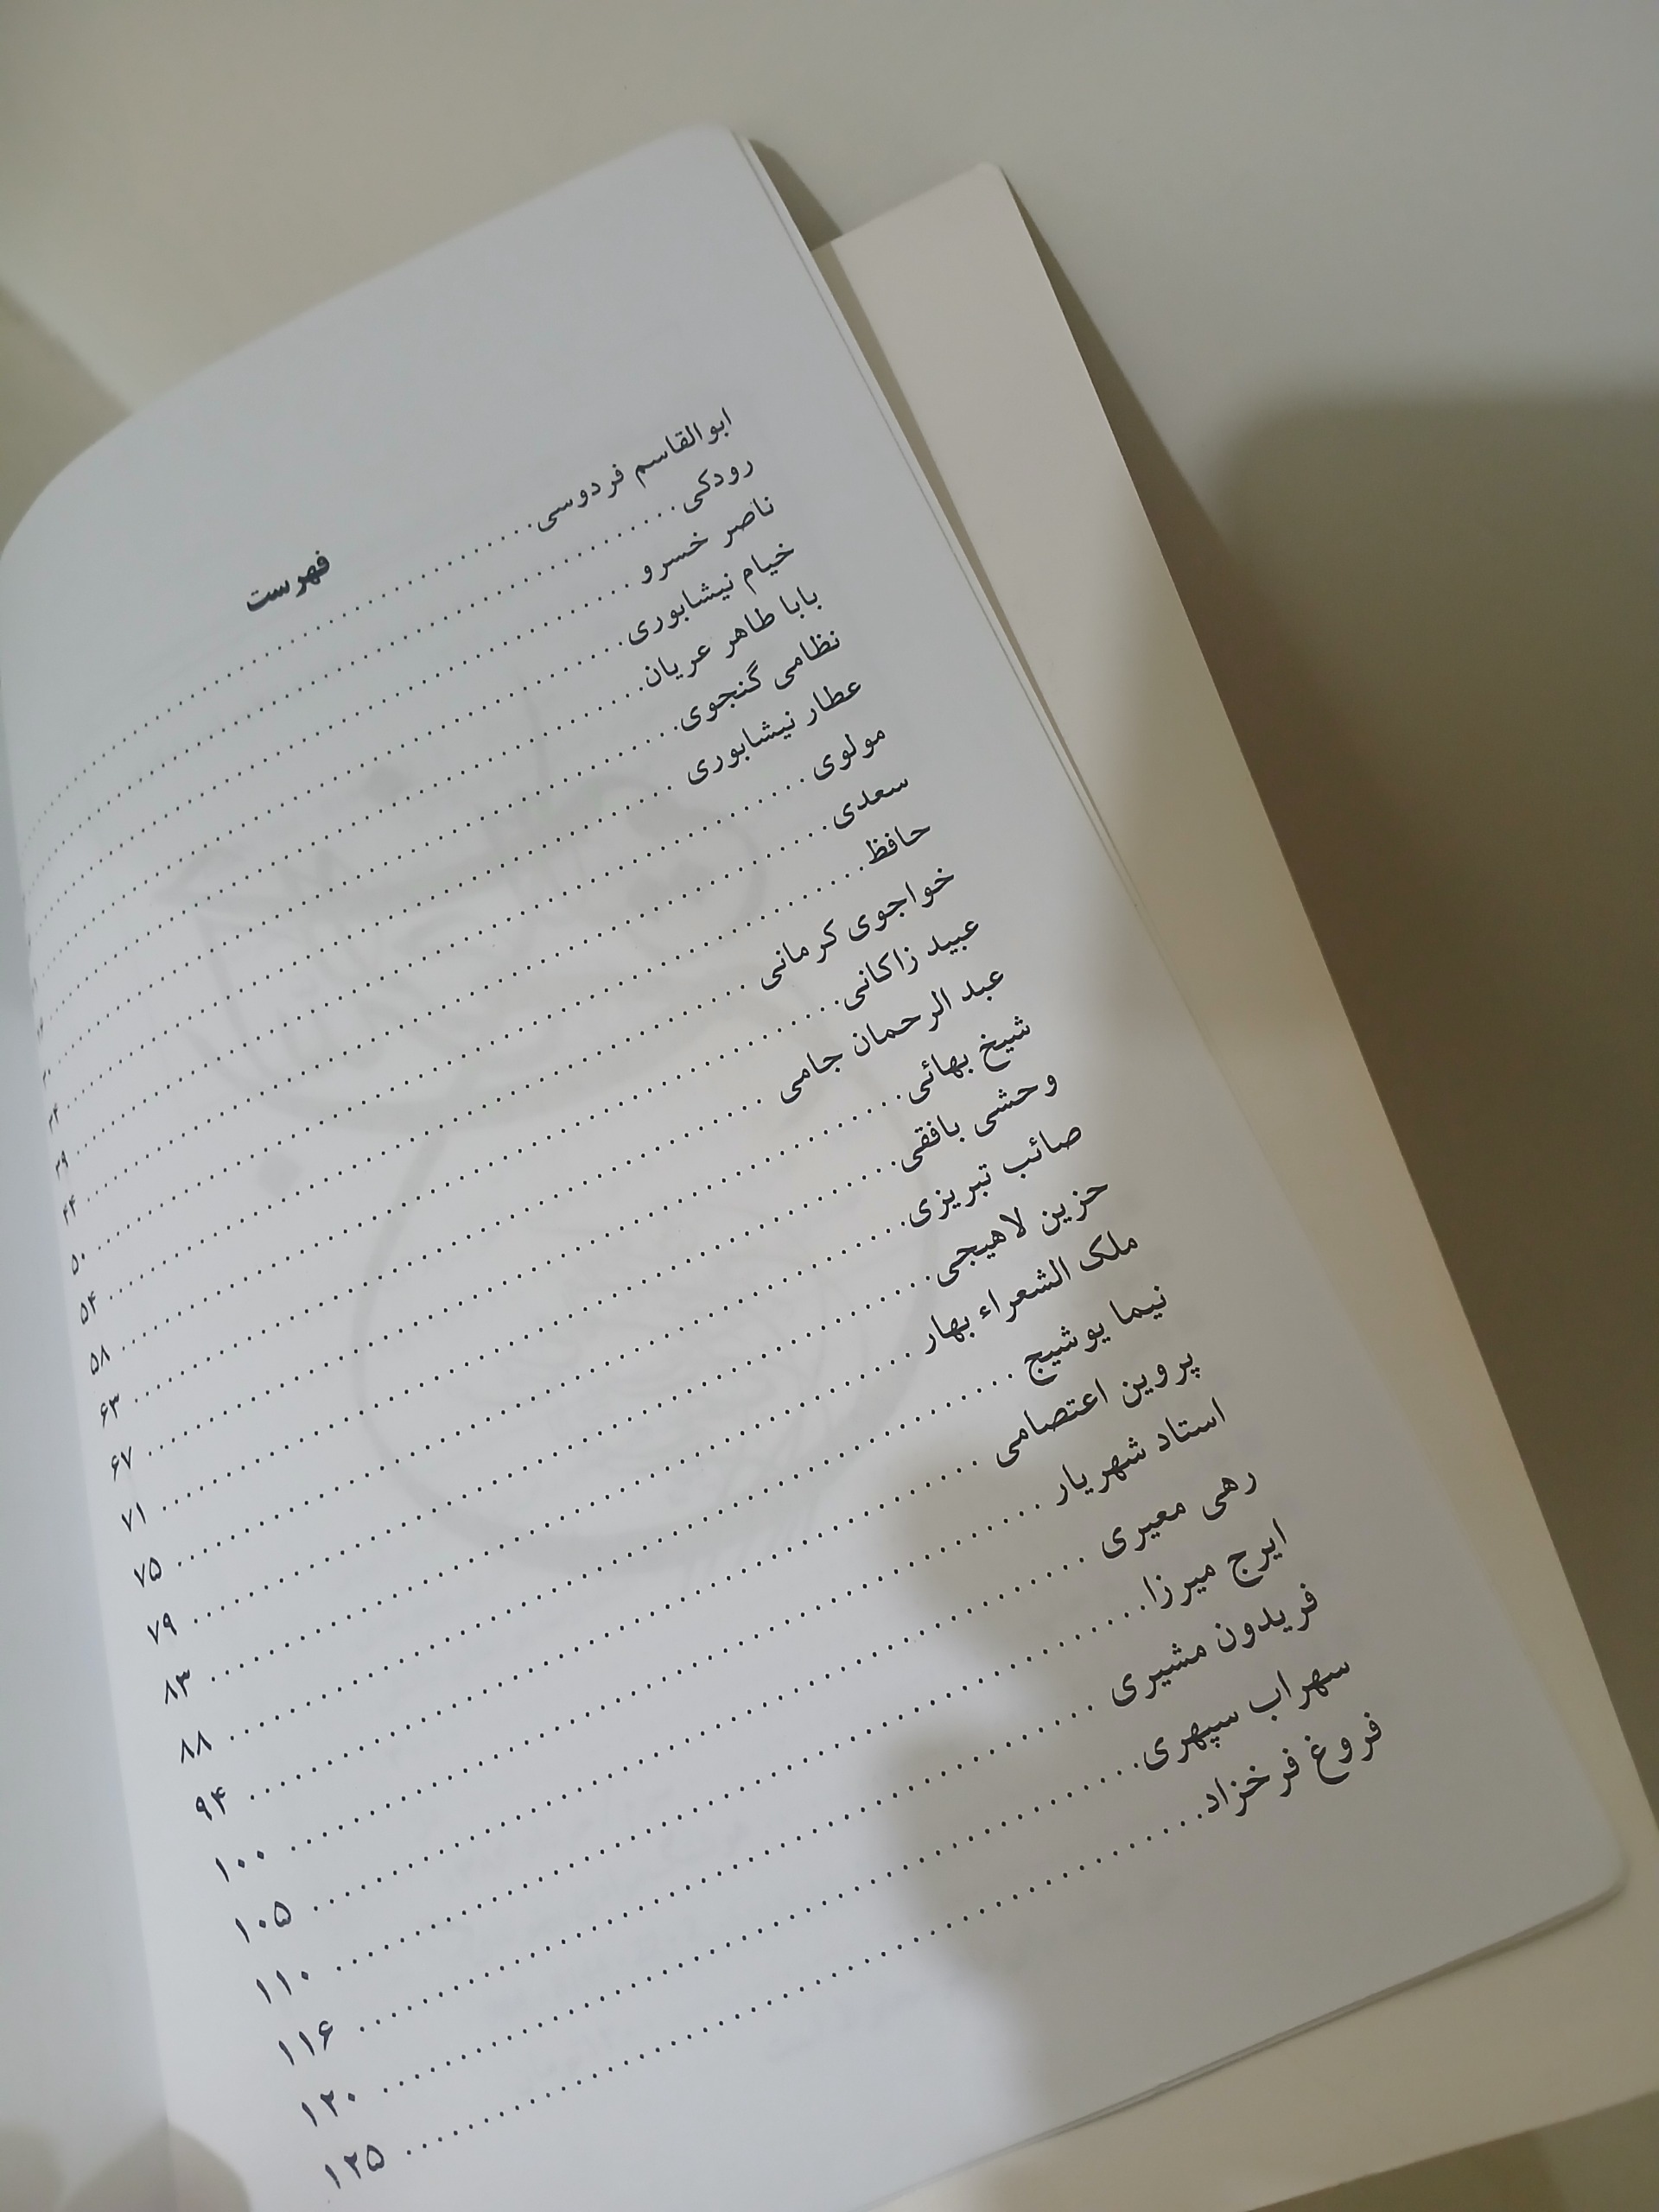 فهرست
ابوالقاسم فردوسی
رودکی
ناصر خسرو
خیام نیشابوری
بابا طاهر عریان
نظامی گنجوی ۳۰
عطار نیشابوری ۳۴
مولوی ۳۹
سعدی ۴۴
حافظ ۵۰
خواجوی کرمانی ۵۴
عبید زاکانی ۵۸
عبد الرحمان جامی ۶۳
شیخ بهائی ۶۷
وحشی بافقی ۷۱
صائب تبریزی ۷۵
حزین لاهیجی ۷۹
ملک الشعراء بهار ۸۳
نیما یوشیج ۸۸
پروین اعتصامی ۹۴
استاد شهریار ۱۰۰
رهی معیری ۱۰۵
ایرج میرزا ۱۱۰
فریدون مشیری ۱۱۶
سهراب سپهری ۱۲۰
فروغ فرخزاد ۱۲۵